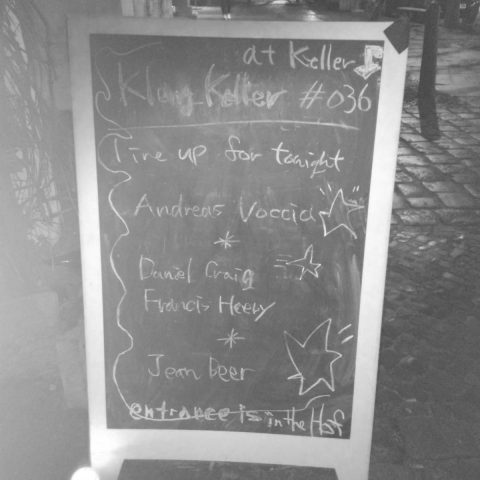 at Keller
Klang Keller #036
Line up for tonight
Andreas Voccia
*
Daniel Craig
Francis Heery
*
Jean Beer
entrance is in the Hof